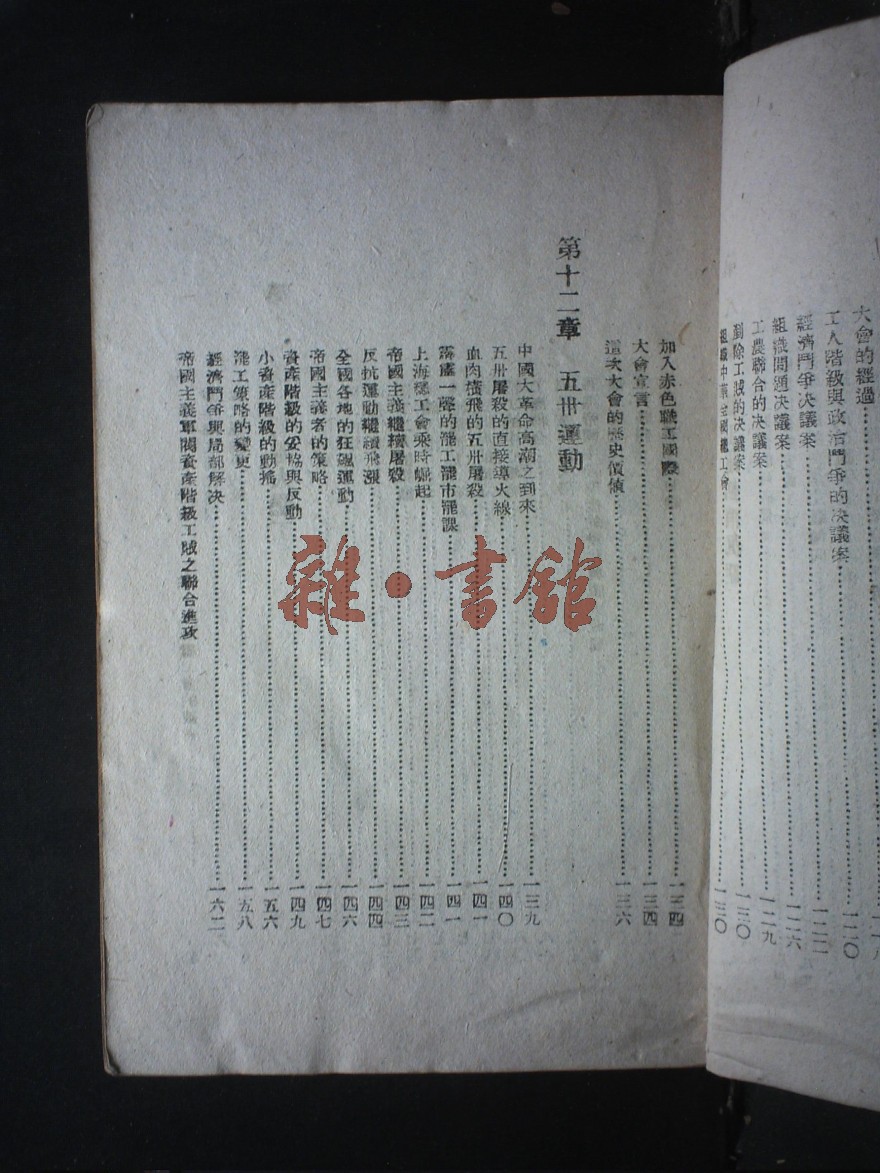 大會的經過
工人階級與政治鬥爭的決議案 一二〇
經濟鬥爭決議案 一二二
組織問題決議案 一二六
工農聯合的決議案 一二九
剷除工賊的決議案 一三〇
組織中華全國總工會 一三〇
加入赤色職工國際 一三四
大會宣言 一三四
這次大會的歷史價値 一三六
第十二章 五卅運動
中國大革命高潮之到來 一三九
五卅屠殺的直接導火線 一四〇
血肉橫飛的五卅屠殺 一四一
霹靂一聲的罷工罷市罷課 一四一
上海總工會乘時崛起 一四二
帝國主義繼續屠殺 一四三
反抗運動繼續飛漲 一四四
全國各地的狂飆運動 一四六
帝國主義者的策略 一四七
資產階級的妥協與反動 一四九
小資產階級的動搖 一五六
罷工策略的變更 一五八
經濟鬥爭與局部解决 一六二
帝國主義軍閥資產階級工賊之聯合進攻
雜·書館